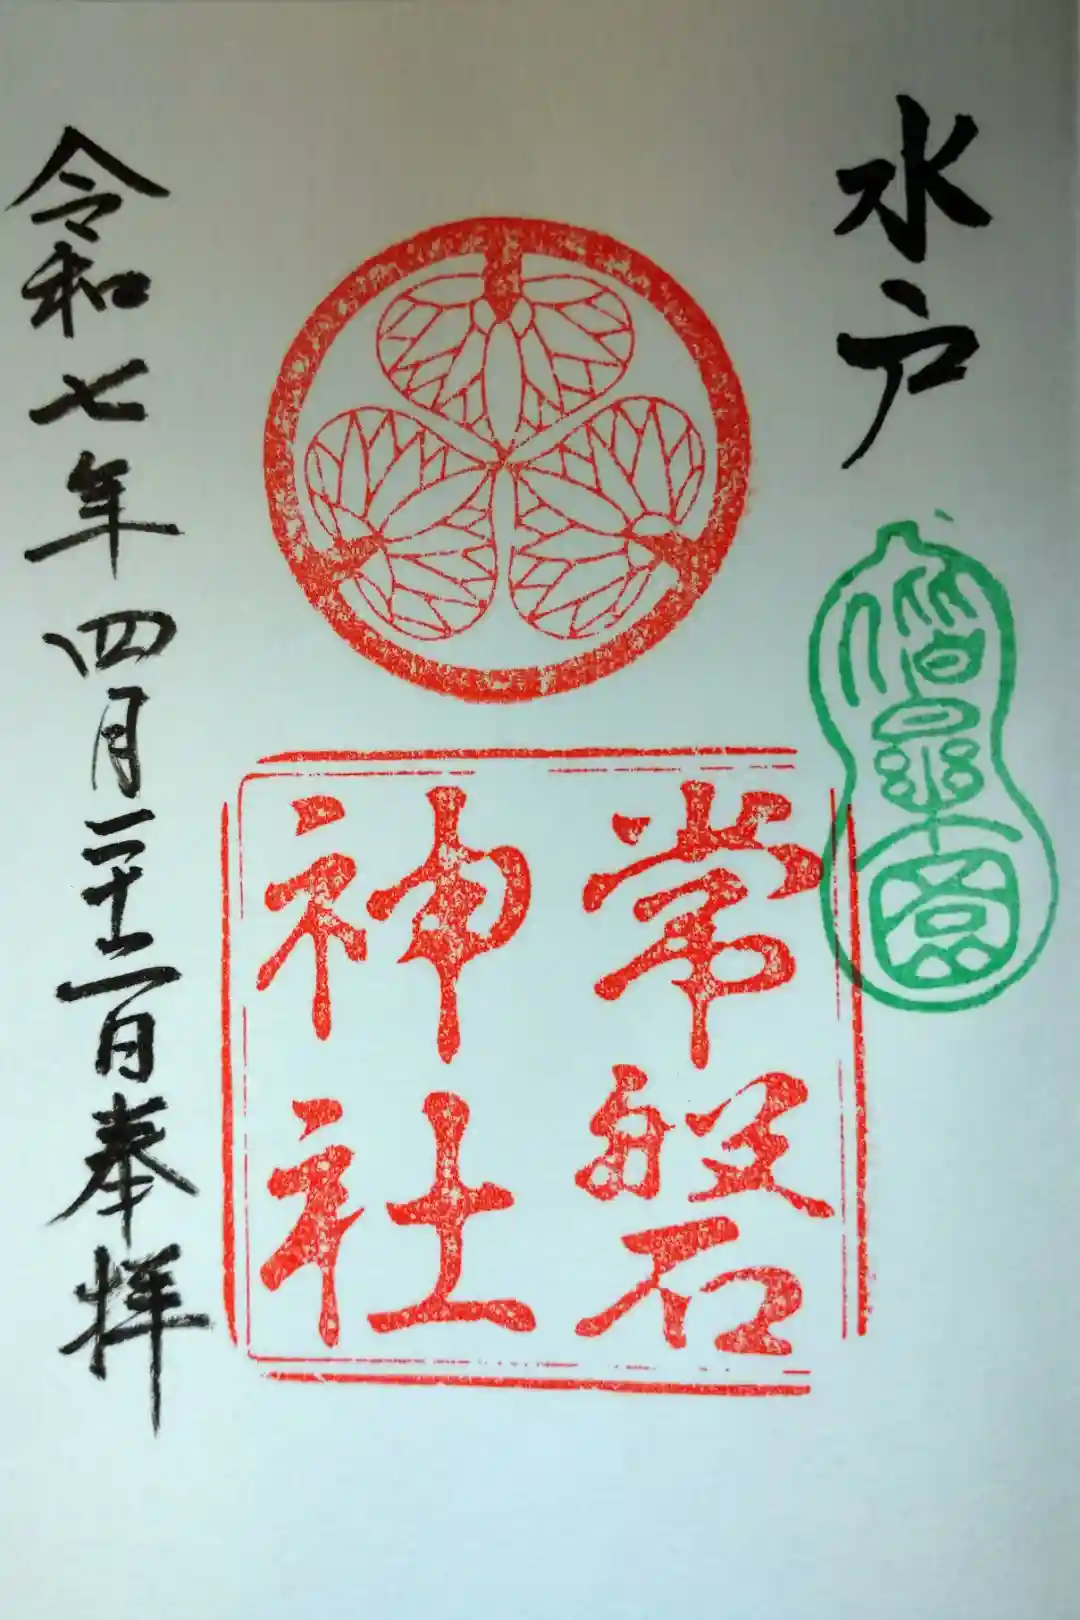 水戸
偕樂園
常磐
神社
令和七年四月二十二日奉拝